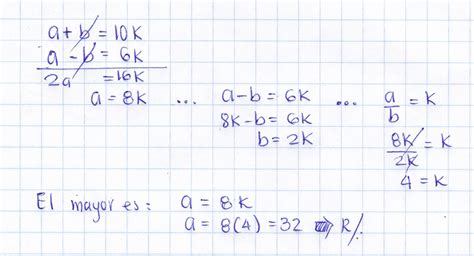 a + b = 10K
a - b = 6K
2a = 16K
a = 8K ... a-b = 6K ... a/b = K
8K-b = 6K
b = 2K
8K/2K = K
4 = K
El mayor es: a = 8K
a = 8(4) = 32 ⇒ R/.